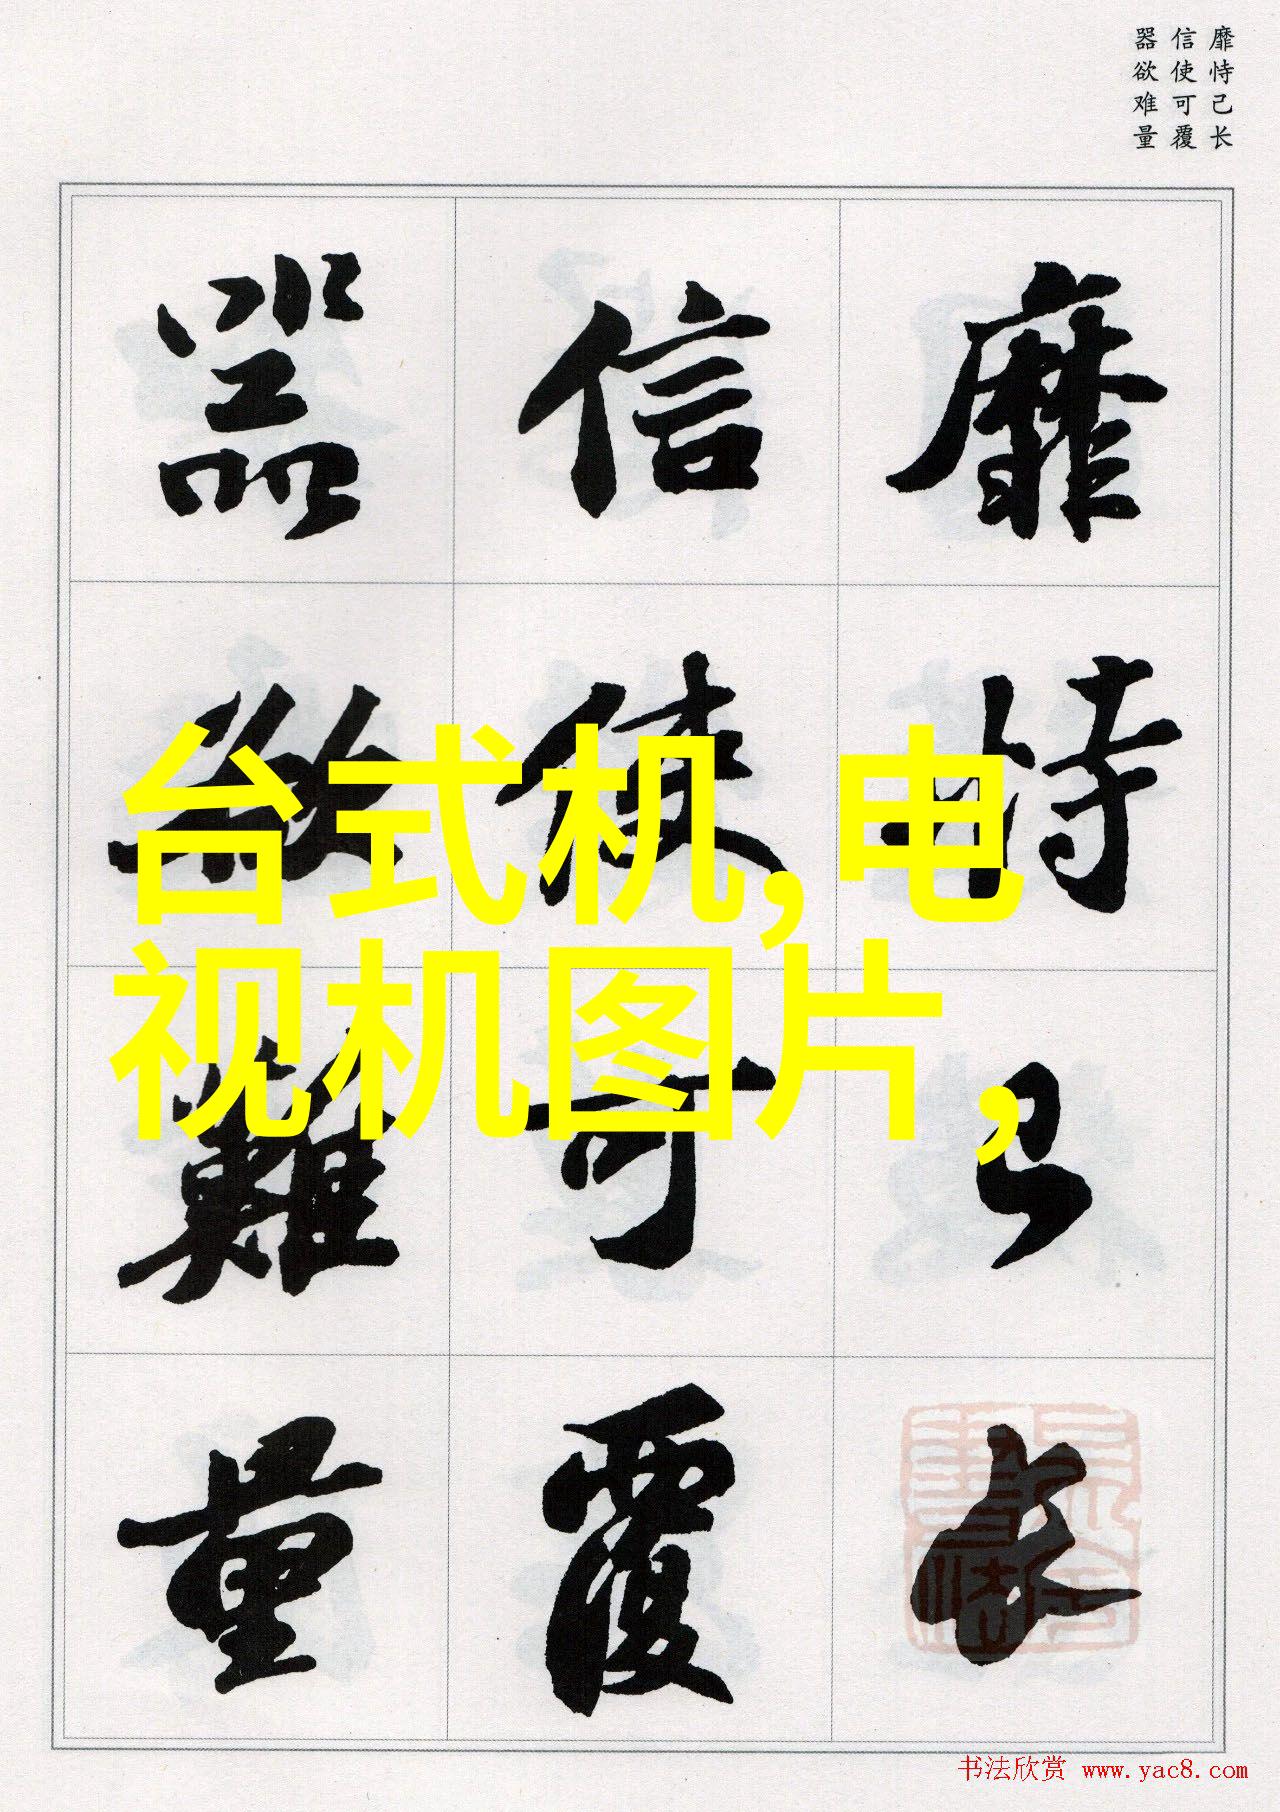 靡恃己长
信使可覆
器欲难量
靡恃己長
信使可覆
器欲難量
台式机,电
视机图片,
书法欣赏 www.yac8.com